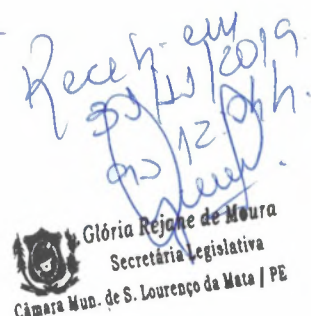 Receb. em
/2019
12
Glória Rejane de Moura
Secretária Legislativa
Câmara Mun. de S. Lourenço da Mata / PE